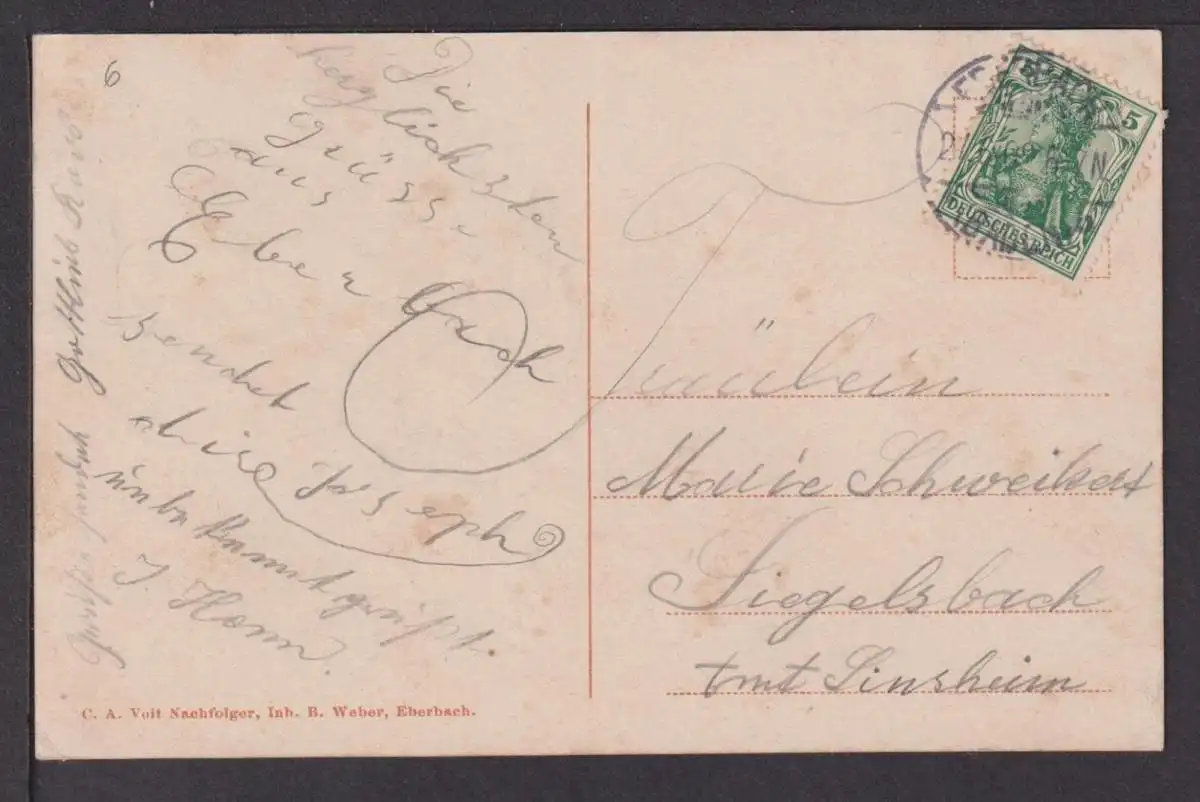 6
Die
herzlichsten
Grüsse
aus
Eberbach
sendet
dir Joseph
unbekannt grüsst
J. Homm.
Gottlieb
Fräulein
Marie Schweikert
Siegelsbach
Amt Sinsheim
5
DEUTSCHES REICH
C. A. Voit Nachfolger, Inh. B. Weber, Eberbach.